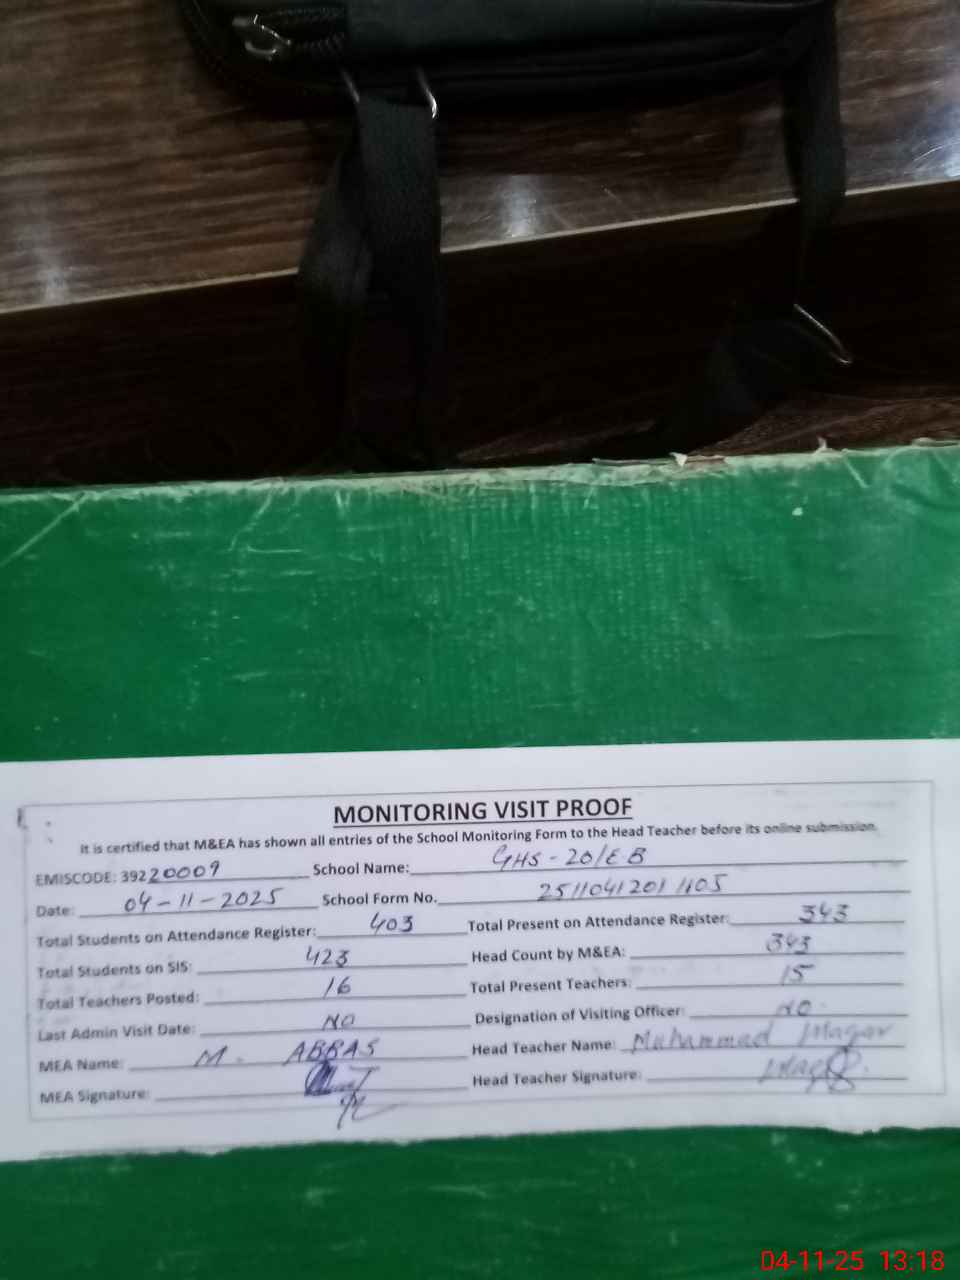 MONITORING VISIT PROOF
It is certified that M&EA has shown all entries of the School Monitoring Form to the Head Teacher before its online submission.
EMISCODE: 39220009 School Name: GHS - 20/E.B
Date: 04-11-2025 School Form No. 2511041201 1105
Total Students on Attendance Register: 403 Total Present on Attendance Register: 343
Total Students on SIS: 423 Head Count by M&EA: 343
Total Teachers Posted: 16 Total Present Teachers: 15
Last Admin Visit Date: NO Designation of Visiting Officer: NO
MEA Name: M. ABBAS Head Teacher Name: Muhammad
MEA Signature: Head Teacher Signature:
04-11-25 13:18